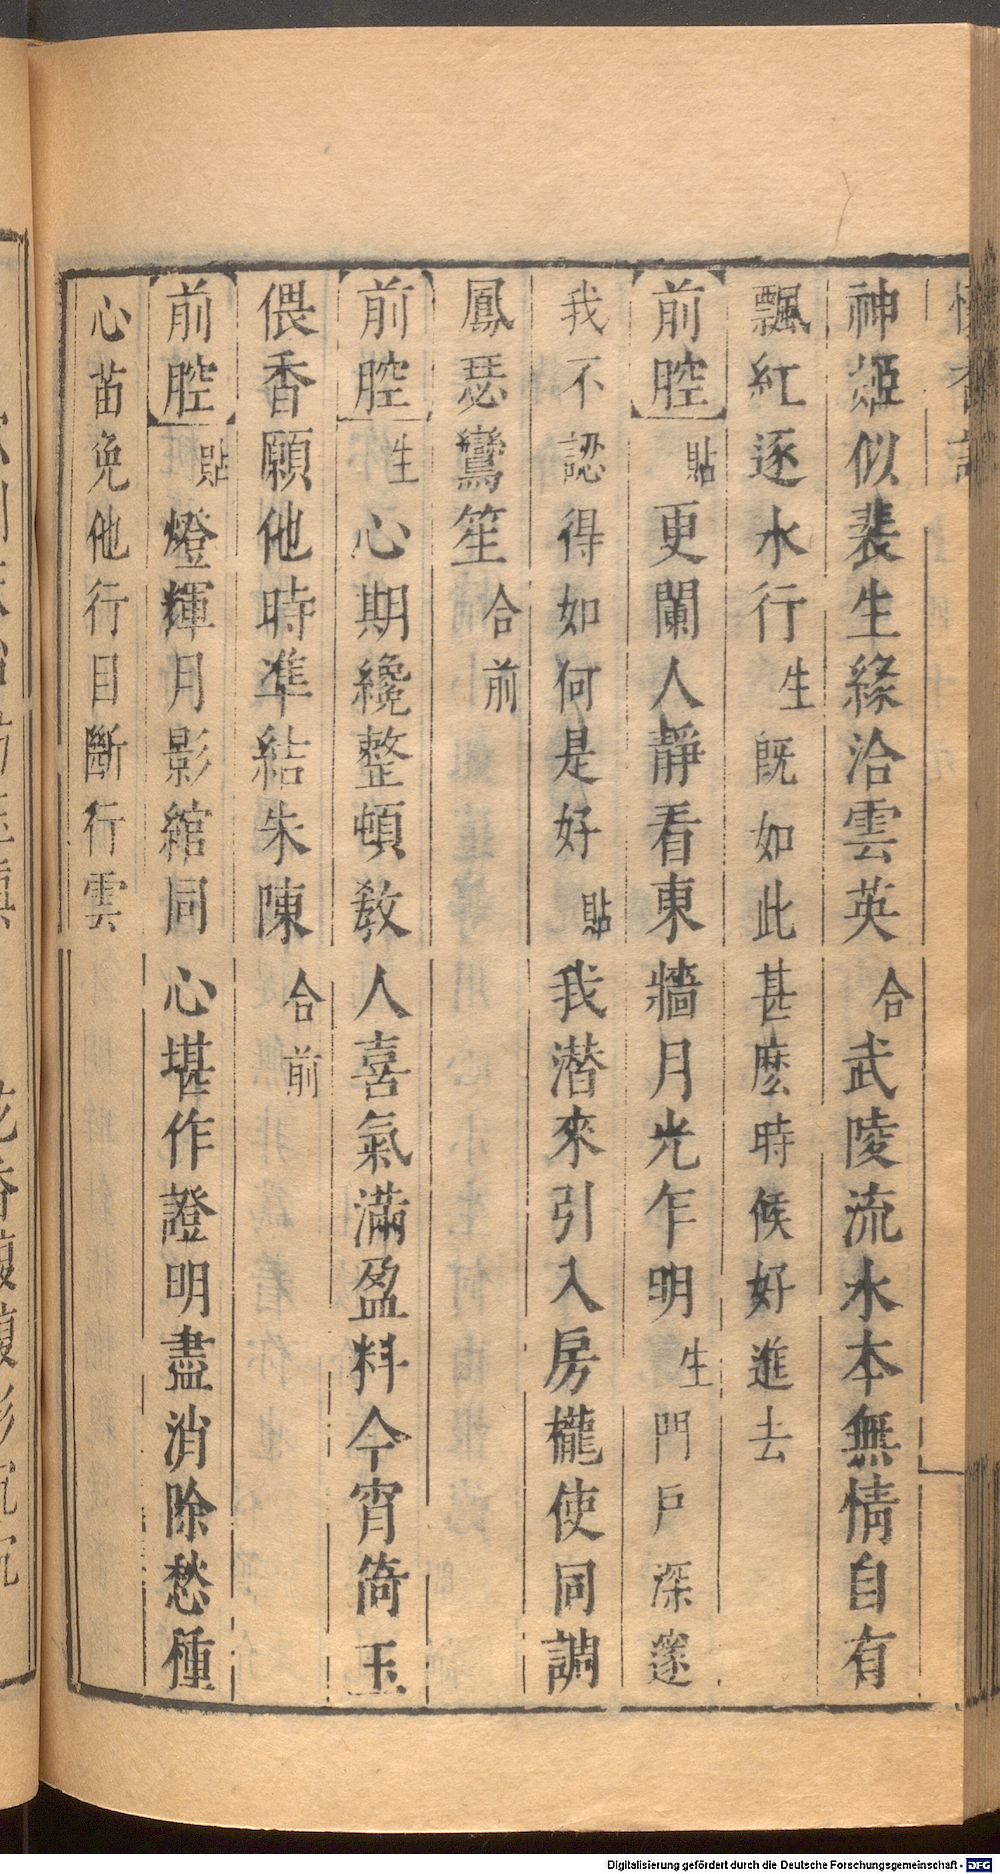 神姬似裴生緣洽雲英合武陵流水本無情自有
飄紅逐水行生既如此甚麽時候好進去
前腔貼更闌人靜看東牆月光乍明生門戶深邃
我不認得如何是好貼我潜來引入房櫳使同調
鳳瑟鸞笙合前
前腔生心期纔整頓教人喜氣滿盈料今宵倚玉
偎香願他時準結朱陳合前
前腔貼燈輝月影綰同心堪作證明盡消除愁種
心苗免他行目斷行雲
Digitalisierung gefördert durch die Deutsche Forschungsgemeinschaft - DFG